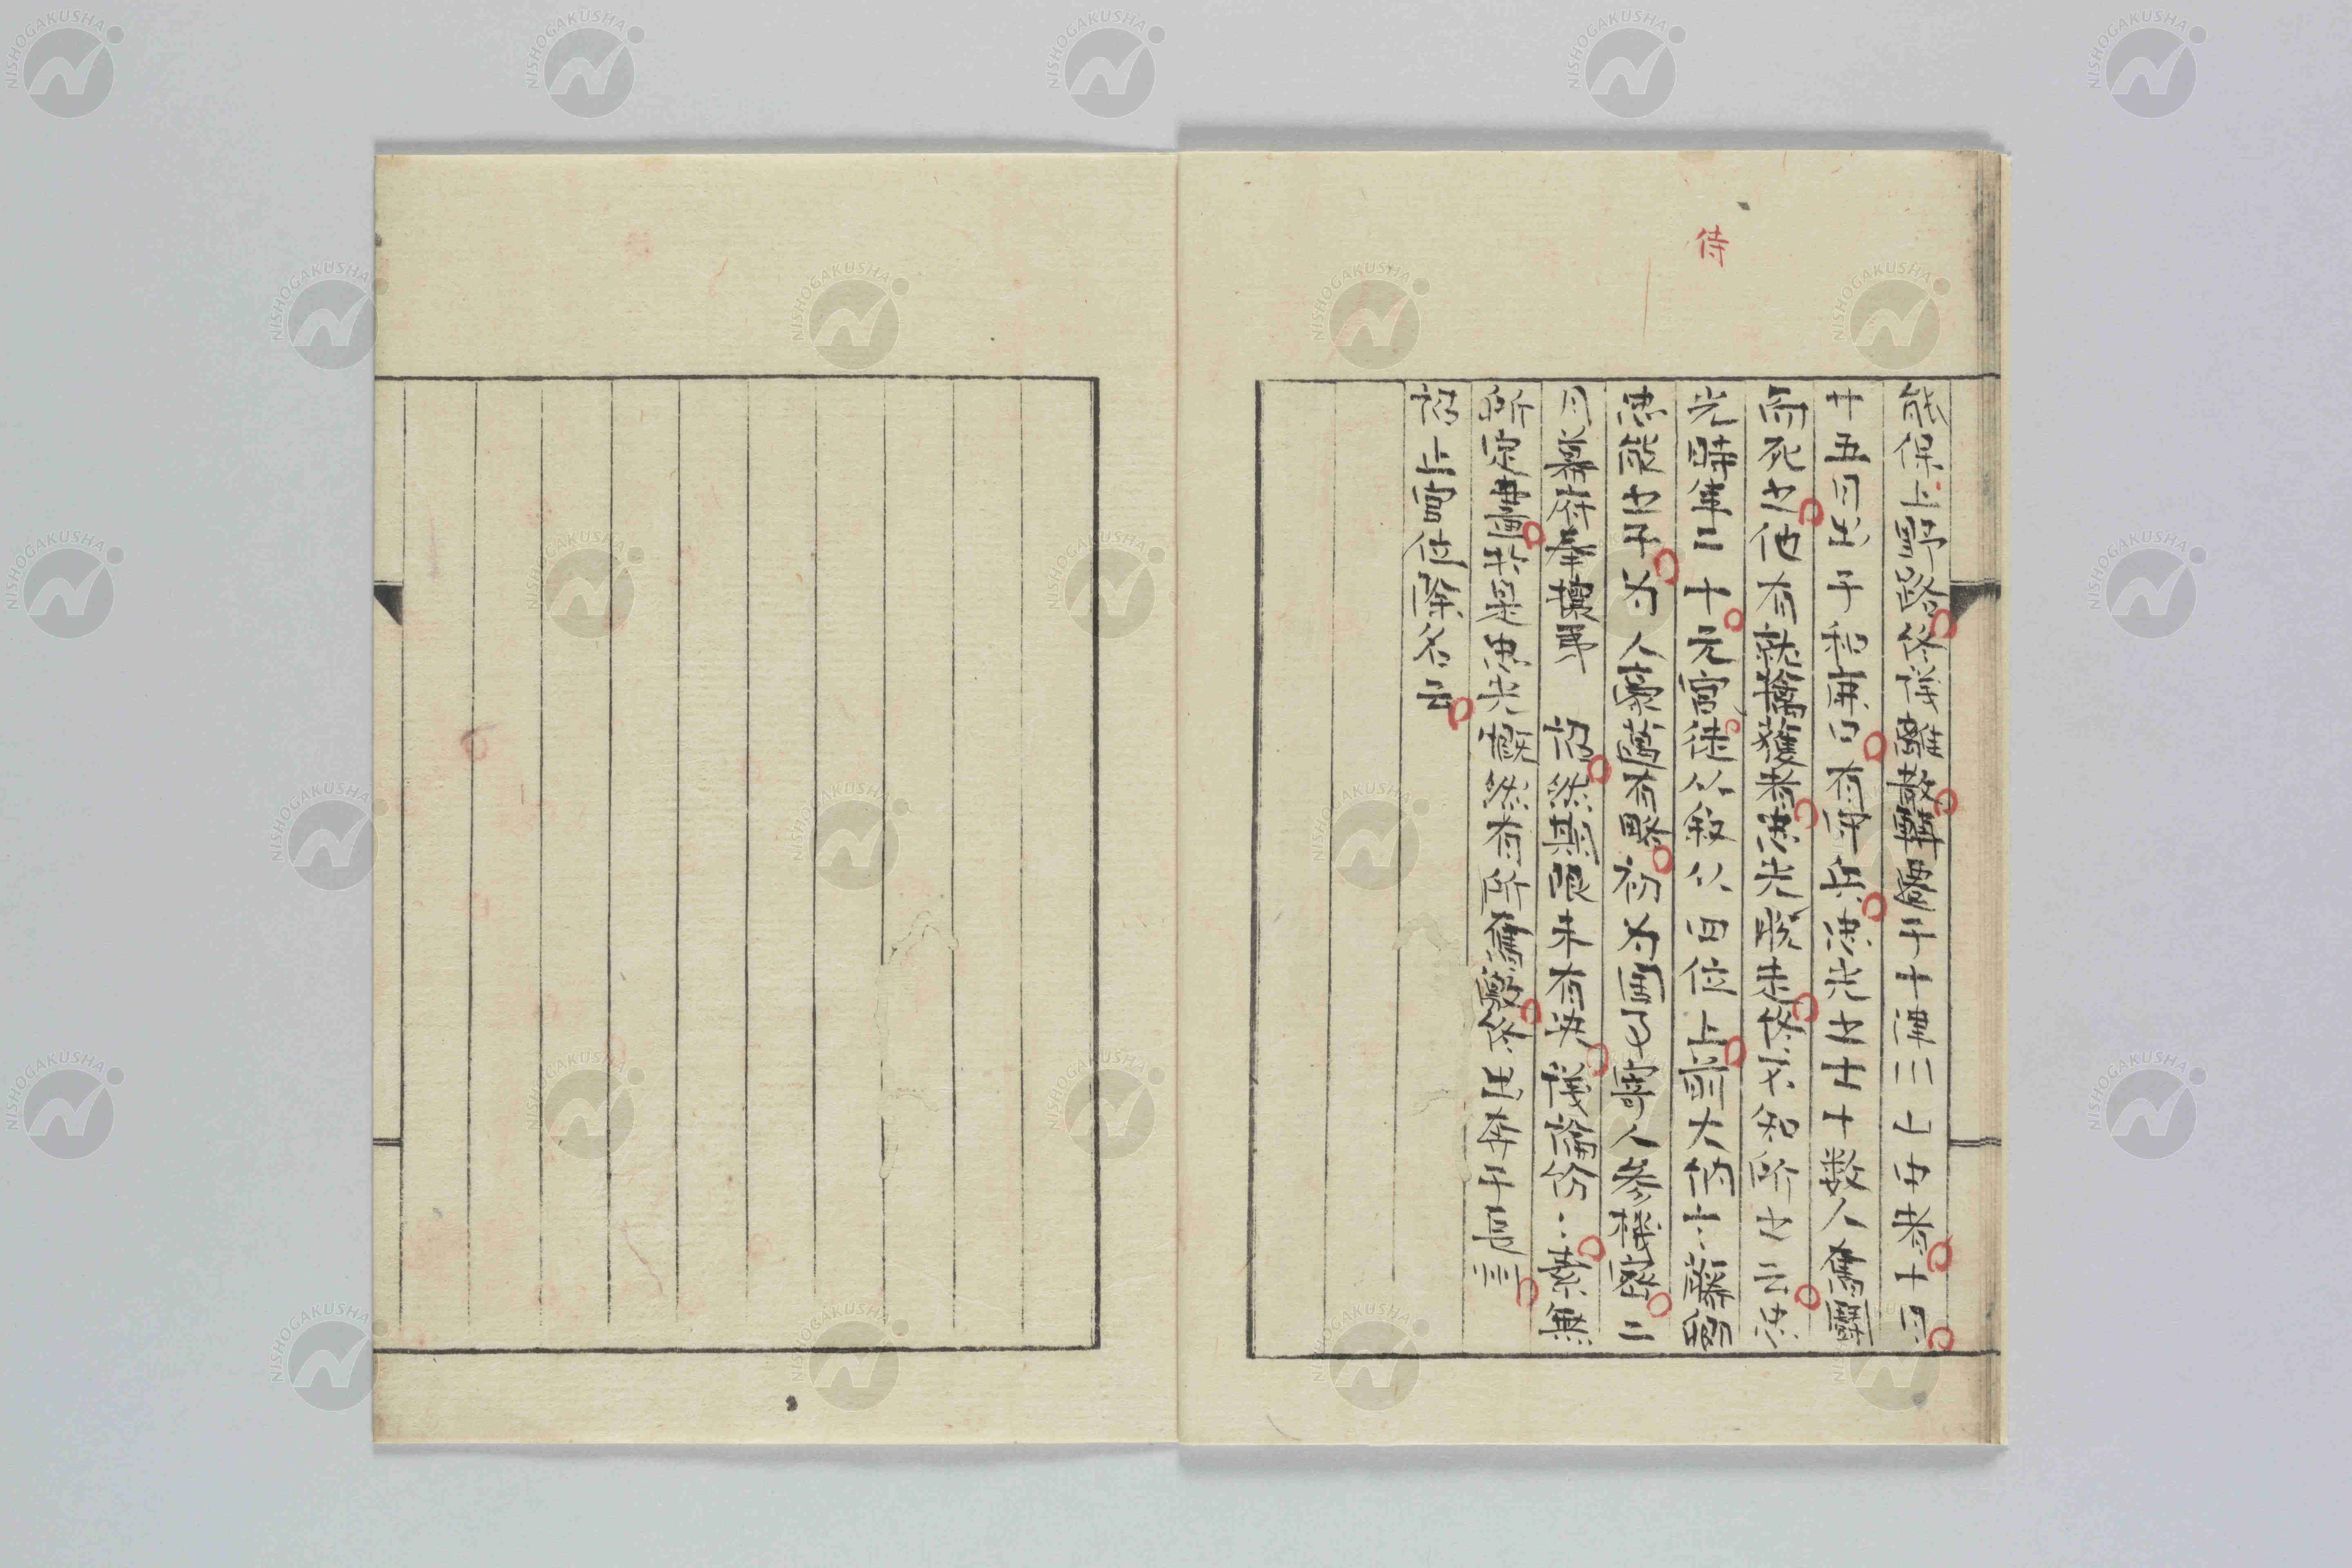 侍
能保上野路終後轉戰于十津川之中者十月
廿五日有兵忠光之士十数人奮鬪
而死之他有就擒獲者忠光脱走終不知所之云忠
光時年二十元官徒从叙从四位上前大納言藤
忠能之子为人豪蕩有略初为国事寄人参機密二
月幕府奉攘夷 詔然期限未有決議論紛々無
所定於是忠光慨然有所奮激終出奔于長
詔上官位除名云
NISHOGAKUSHA